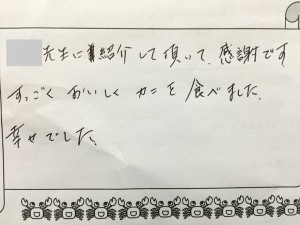 先生に紹介して頂いて、感謝です
すっごくおいしくカニを食べました。
幸せでした。